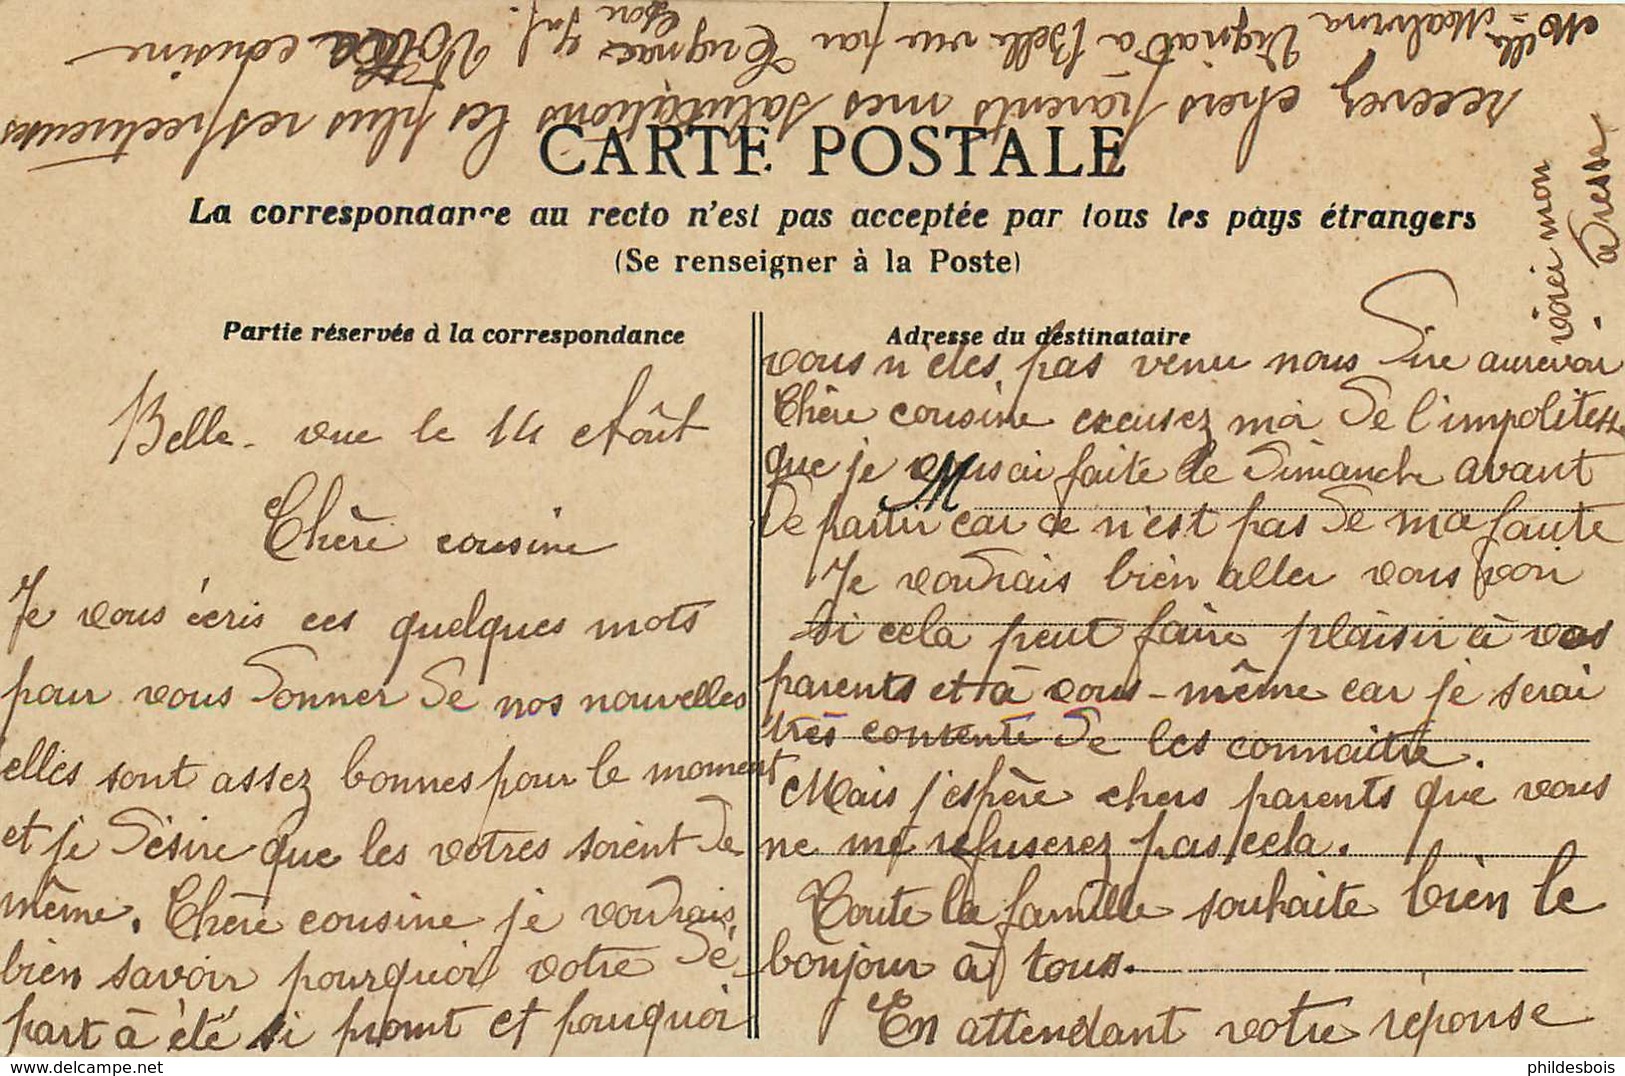 CARTE POSTALE
La correspondance au recto n'est pas acceptée par tous les pays étrangers
(Se renseigner à la Poste)
Partie réservée à la correspondance
Belle-vue le 14 Août
Chère cousine
Je vous écris ces quelques mots
pour vous donner de nos nouvelles
elles sont assez bonnes pour le moment
et je désire que les votres soient de
même. Chère cousine je voudrais
bien savoir pourquoi votre dé-
part à été si promt et pourquoi
Adresse du destinataire
vous n'étes pas venu nous dire aurevoir
Chère cousine excusez moi de l'impolitesse
que je vous ai faite le dimanche avant
M
de partir car ce n'est pas de ma faute
Je voudrais bien aller vous voir
si cela peut faire plaisir à vos
parents et à vous-même car je serai
très contente de les connaitre.
Mais j'espère chers parents que vous
ne me refuserez pas cela.
Toute la famille souhaite bien le
bonjour à tous.
En attendant votre réponse
recevez chers parents mes salutations les plus respectueuses
Votre cousine
voici mon
adresse
Melle Malvina Vignat à Belle vue par
phildesbois